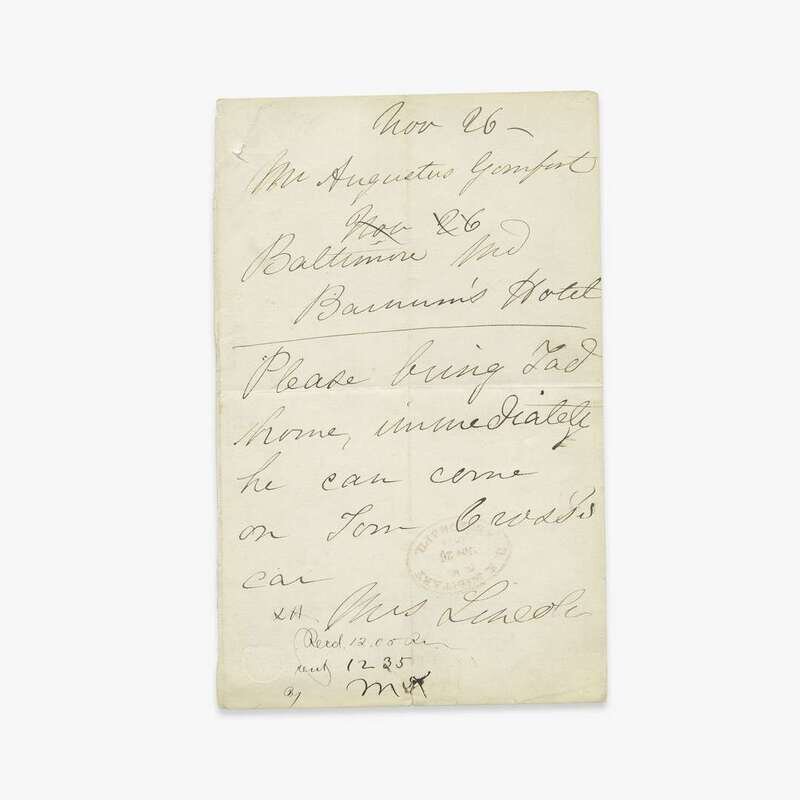 Nov 26 –
Mr Augustus Gomfort
Nov 26
Baltimore Md
Barnum's Hotel
Please bring Tad
home, immediately
he can come
on Tom Cross's
car
Mrs Lincoln
Recd 12.00
sent 12 35
By